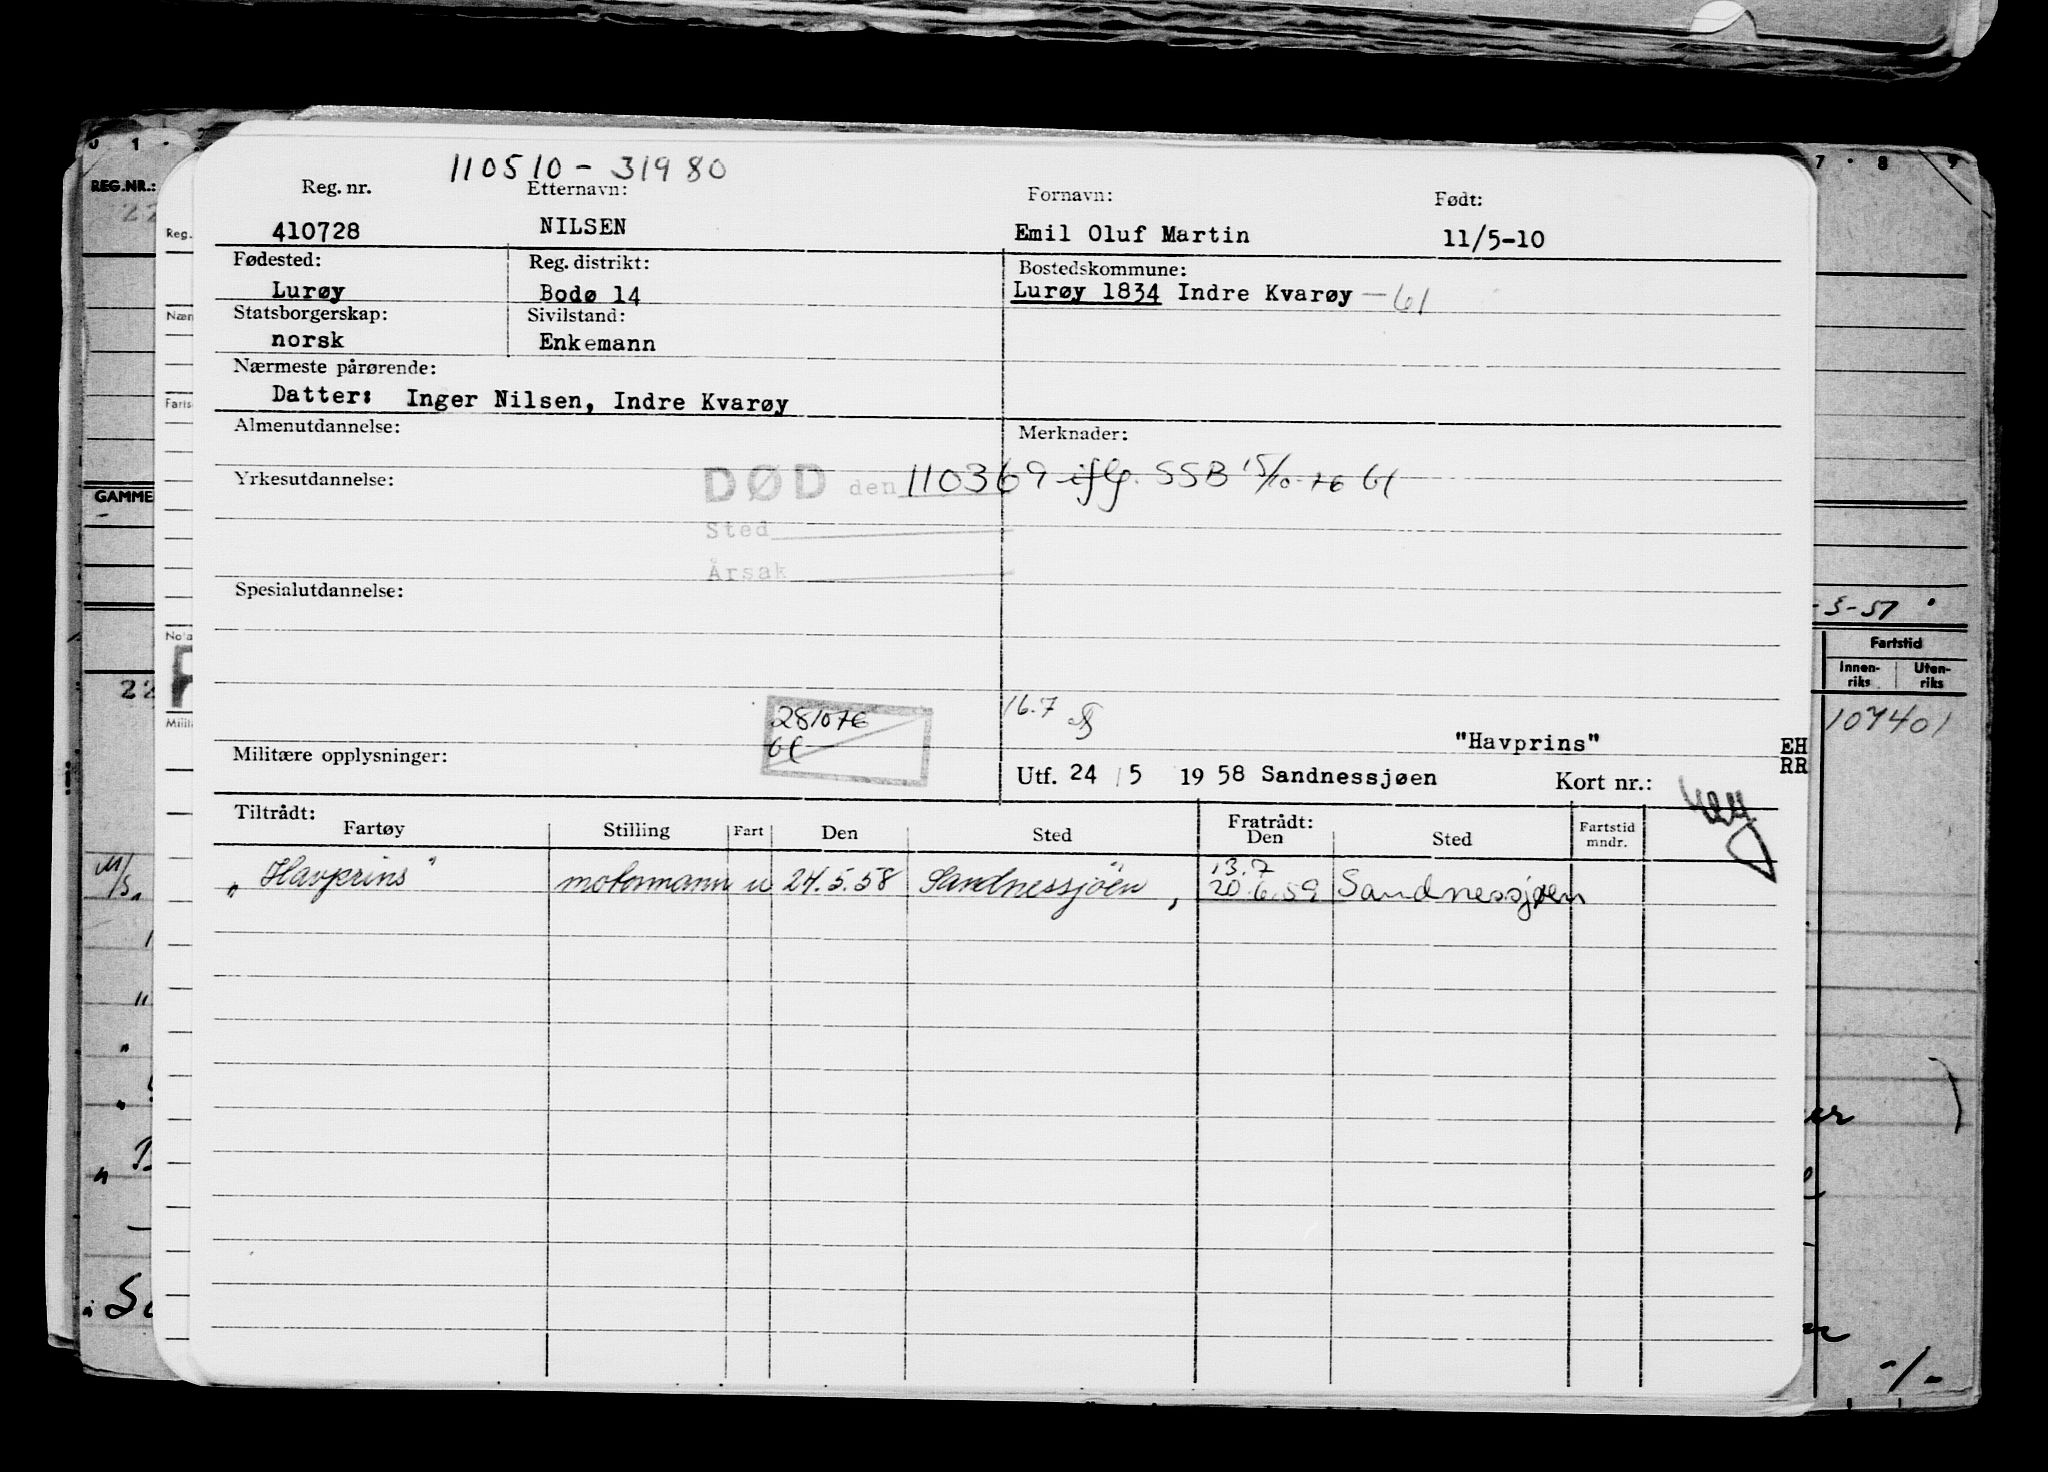 110510 - 31980
Reg. nr. Etternavn: Fornavn: Født:
410728 NILSEN Emil Oluf Martin 11/5-10
Fødested: Reg. distrikt: Bostedskommune:
Lurøy Bodø 14 Lurøy 1834 Indre Kvarøy - 61
Statsborgerskap: Sivilstand:
norsk Enkemann
Nærmeste pårørende:
Datter: Inger Nilsen, Indre Kvarøy
Almenutdannelse: Merknader:
Yrkesutdannelse: DØD den 110369 iflg. SSB 15/10-76
Sted
Årsak
Spesialutdannelse:
281076
16.7
"Havprins" EH
RR
Militære opplysninger: Utf. 24 / 5 19 58 Sandnessjøen Kort nr.:
Tiltrådt: Fratrådt:
Fartøy Stilling Fart Den Sted Den Sted Fartstid
mndr.
13.7
"Havprins" motormann u 24.5.58 Sandnessjöen, 20.6.59 Sandnessjøen
REG.NR.:
22
Reg.
Næn
Farts
GAMME
Nota
22
Milit
M/S.
7 8 9
-3-57
Fartstid
Innen-
riks
Uten-
riks
107401
-/-